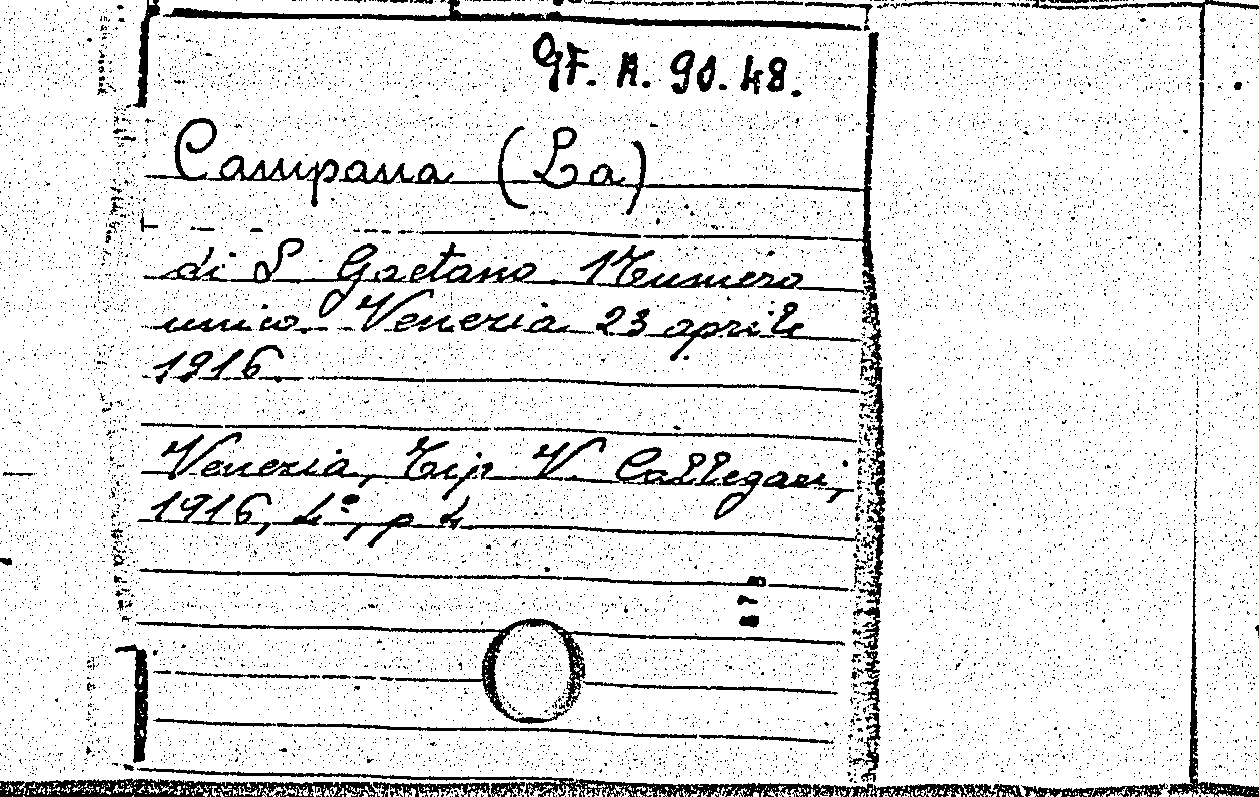 GF. A. 90. 48.
Campana (La)
di S Gaetano Numero
unico. Venezia 23 aprile
1916
Venezia, Tip V. Callegari,
1916, 4°, p 4